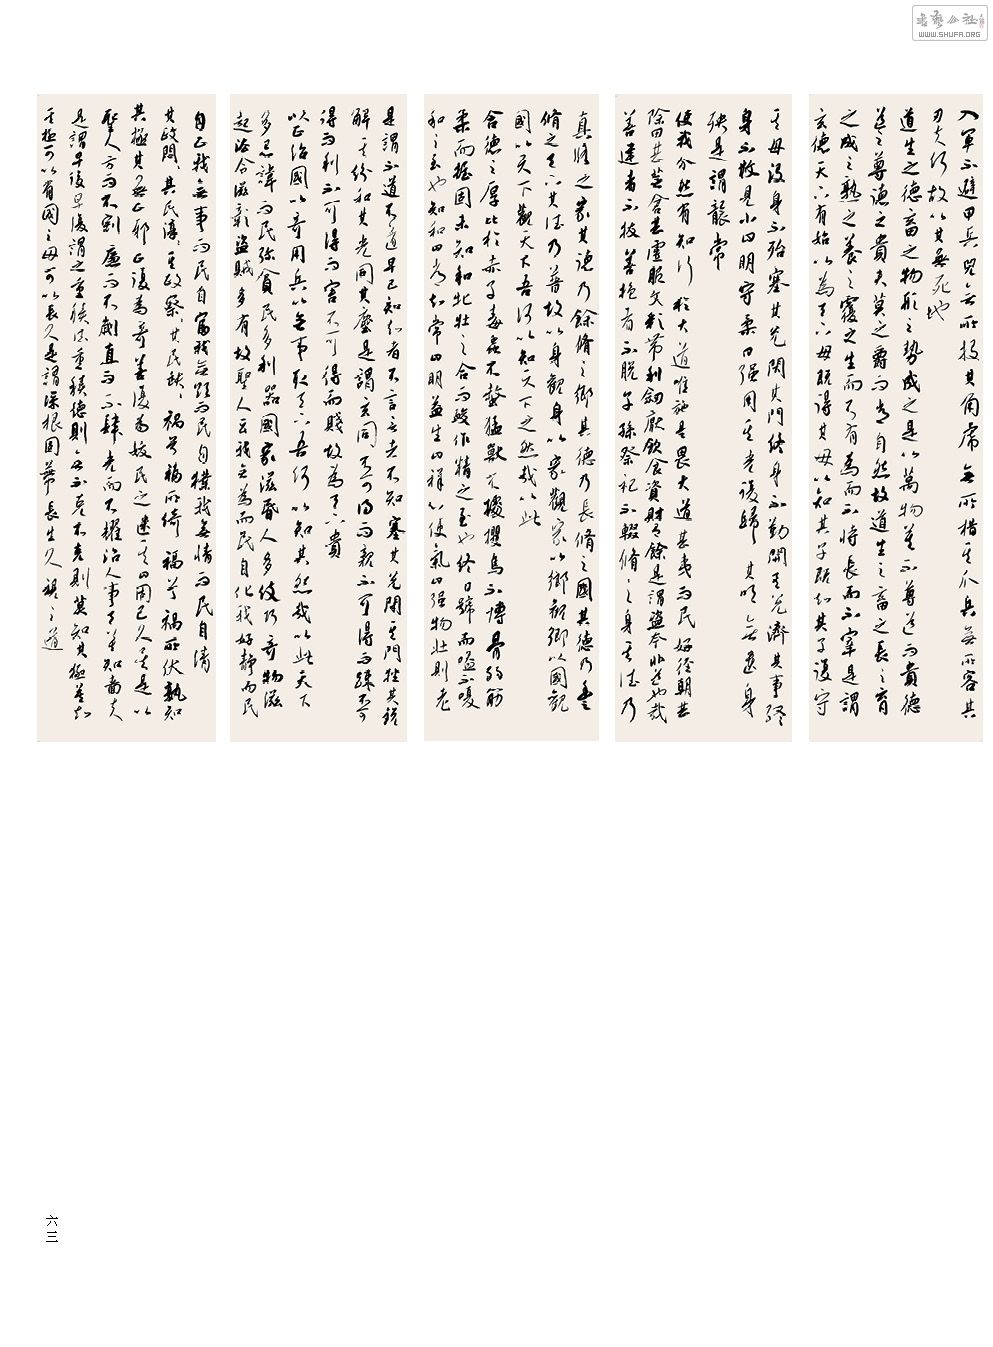 入軍不避甲兵兕無所投其角虎無所措其爪兵無所容其
刃夫何故以其無死地
道生之德畜之物形之勢成之是以萬物莫不尊道而貴德
道之尊德之貴夫莫之爵而常自然故道生之畜之長之育
之成之熟之養之覆之生而不有為而不恃長而不宰是謂
玄德天下有始以為天下母既得其母以知其子既知其子復守
其母没身不殆塞其兌閉其門終身不勤開其兌濟其事終
身不救見小曰明守柔曰强用其光復歸其明無遺身
殃是謂襲常
使我介然有知行於大道唯施是畏大道甚夷而民好徑朝甚
除田甚蕪倉甚虛服文彩帶利劒厭飲食資財有餘是謂盜夸非道也哉
善建者不拔善抱者不脱子孫祭祀不輟脩之身其德乃
真脩之家其德乃餘脩之鄉其德乃長脩之國其德乃豐
脩之天下其德乃普故以身觀身以家觀家以鄉觀鄉以國觀
國以天下觀天下吾何以知天下之然哉以此
含德之厚比於赤子毒蟲不螫猛獸不據攫鳥不博骨弱筋
柔而握固未知和牝牡之合而䘒作精之至也終日號而嗌不嗄
和之至也知和曰常知常曰明益生曰祥心使氣曰强物壯則老
是謂不道不道早已知者不言言者不知塞其兌閉其門挫其銳
解其紛和其光同其塵是謂玄同不可得而親不可得而疎不可
得而利不可得而害不可得而貴不可得而賤故為天下貴
以正治國以奇用兵以無事取天下吾何以知其然哉以此天下
多忌諱而民弥貧民多利器國家滋昏人多伎巧奇物滋
起法令滋彰盜賊多有故聖人云我無為而民自化我好靜而民
自正我無事而民自富我無欲而民自樸我無情而民自清
其政悶其民淳其政察其民缺禍兮福所倚福兮禍所伏孰知
其極其無正邪正復為奇善復為妖民之迷其日固已久矣是以
聖人方而不割廉而不劌直而不肆光而不耀治人事天莫如嗇夫
是謂早復早復謂之重積德重積德則無不克不克則莫知其極莫知
其極可以有國有國之母可以長久是謂深根固蒂長生久視之道
六三
WWW.SHUFA.ORG